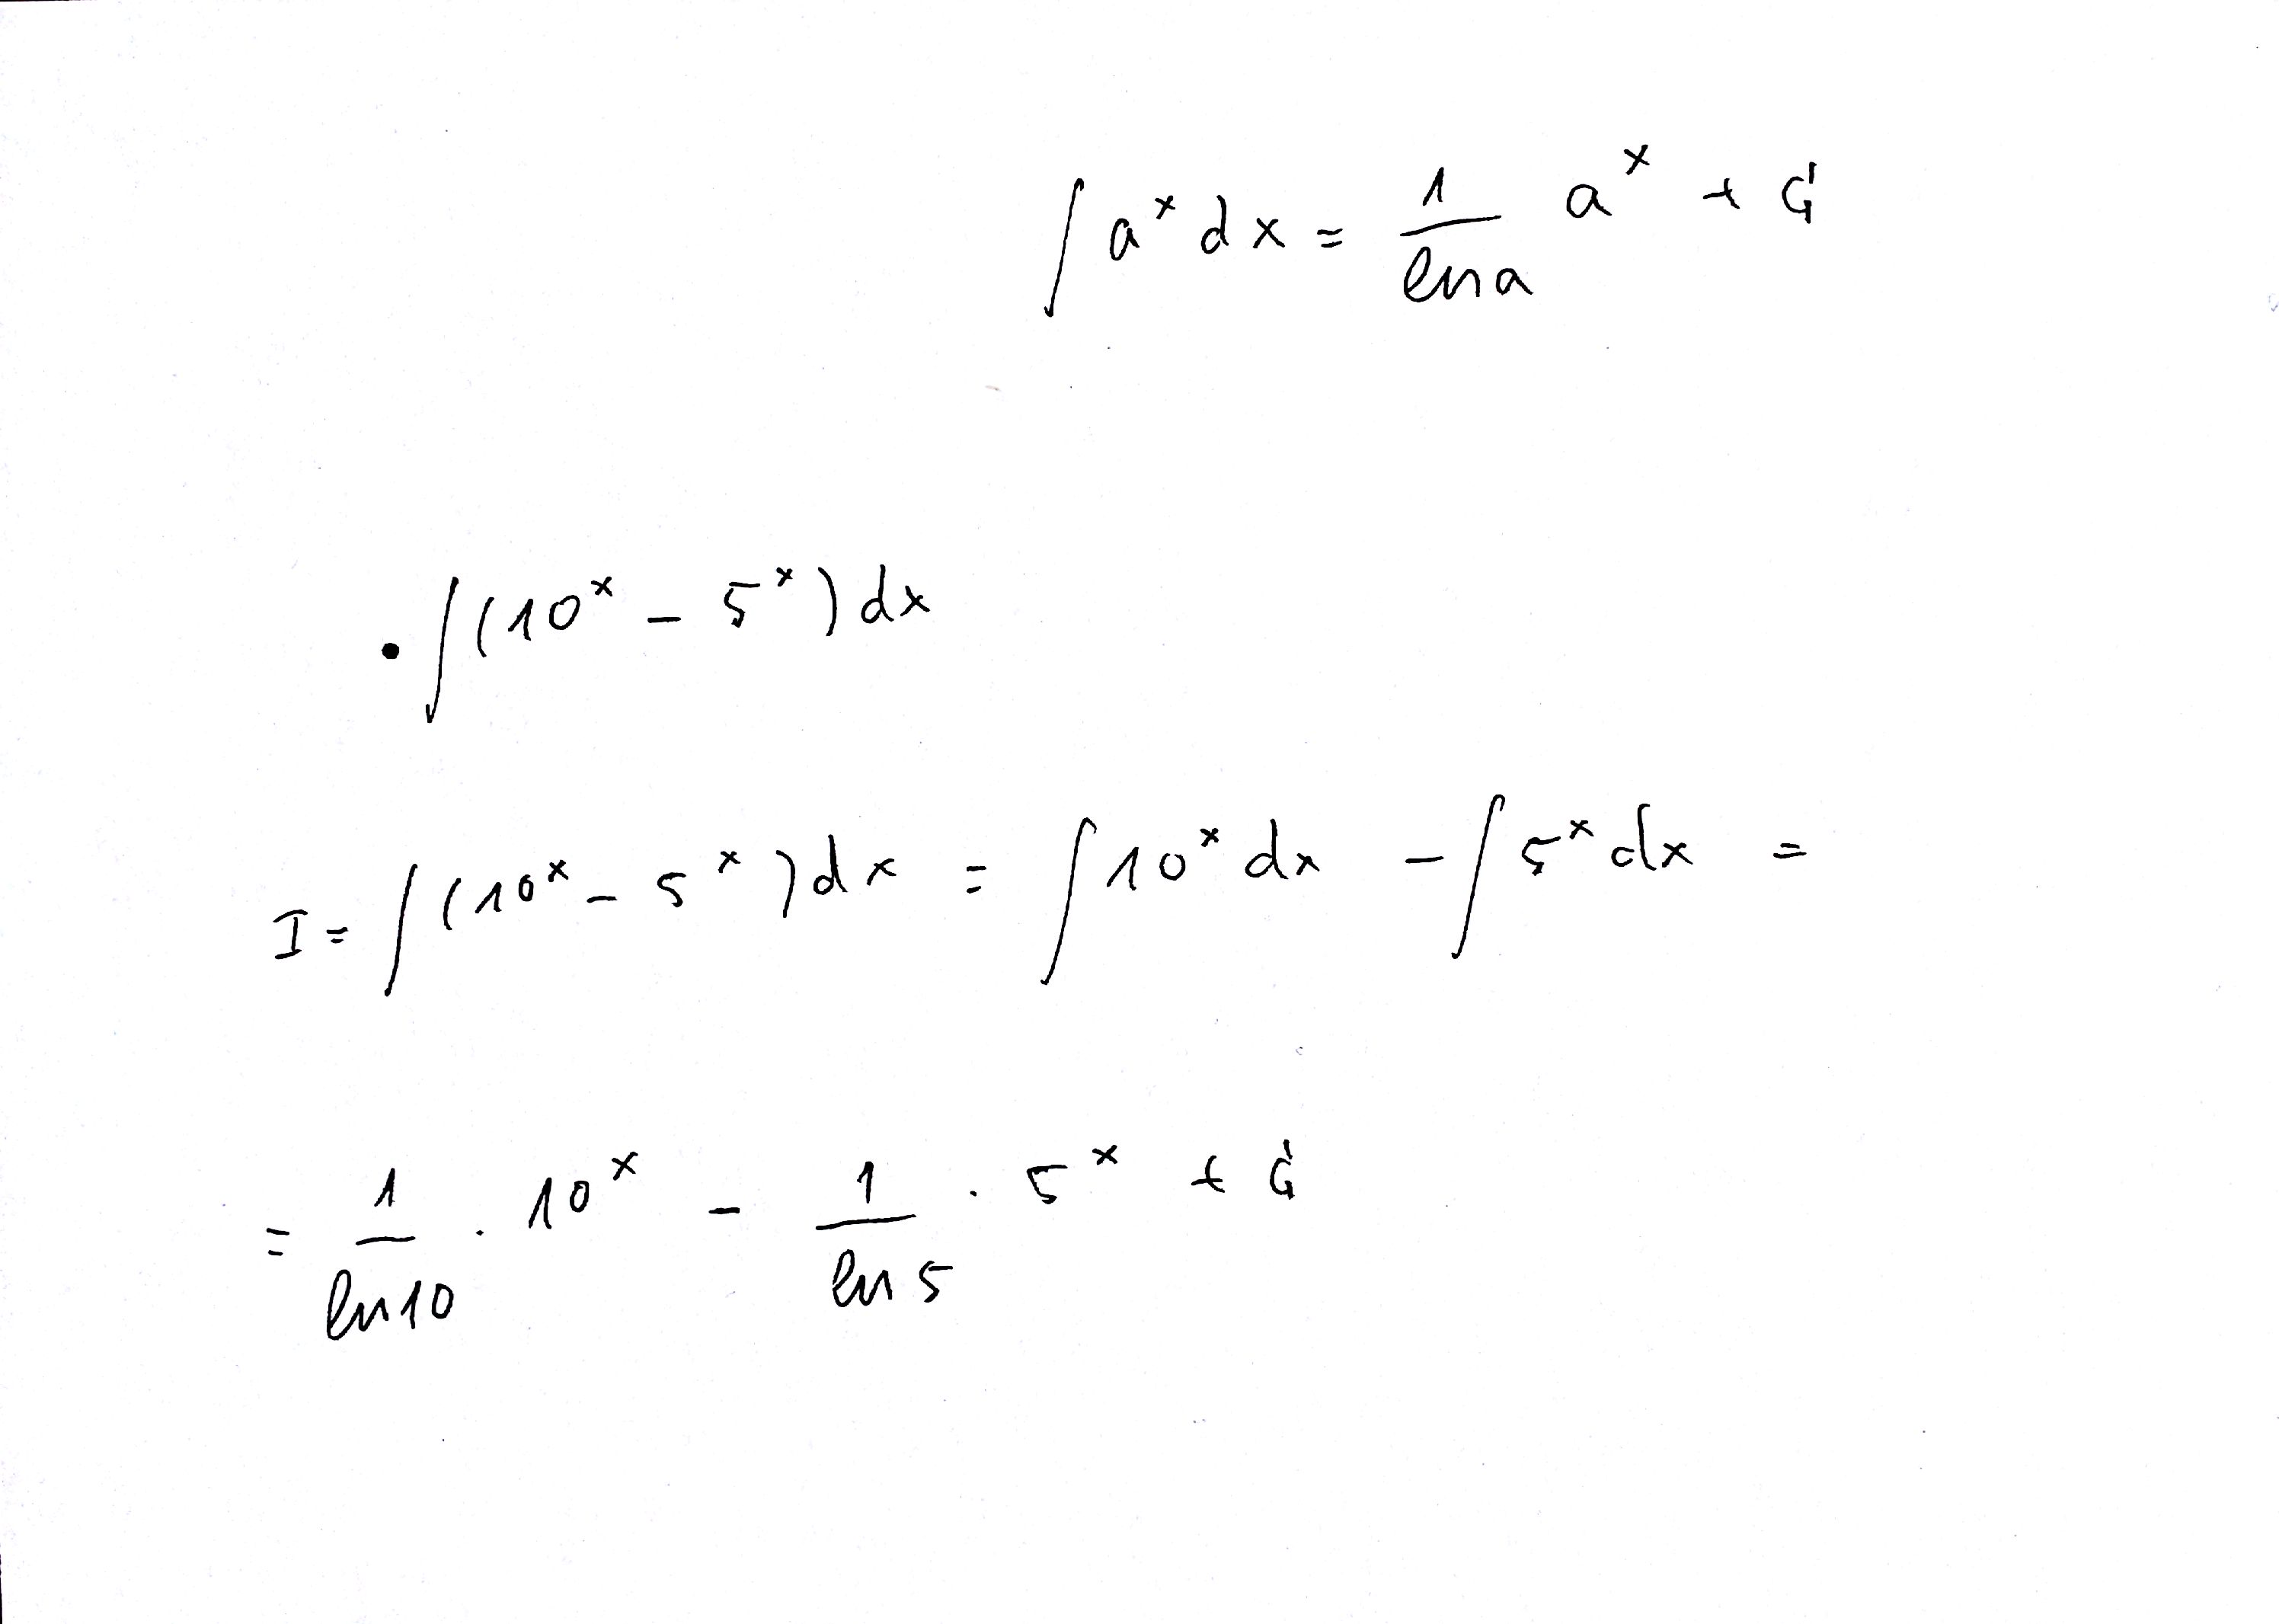 ∫ a^x dx = 1/ln a a^x + C
• ∫ (10^x - 5^x) dx
I = ∫ (10^x - 5^x) dx = ∫ 10^x dx - ∫ 5^x dx =
= 1/ln 10 · 10^x - 1/ln 5 · 5^x + C